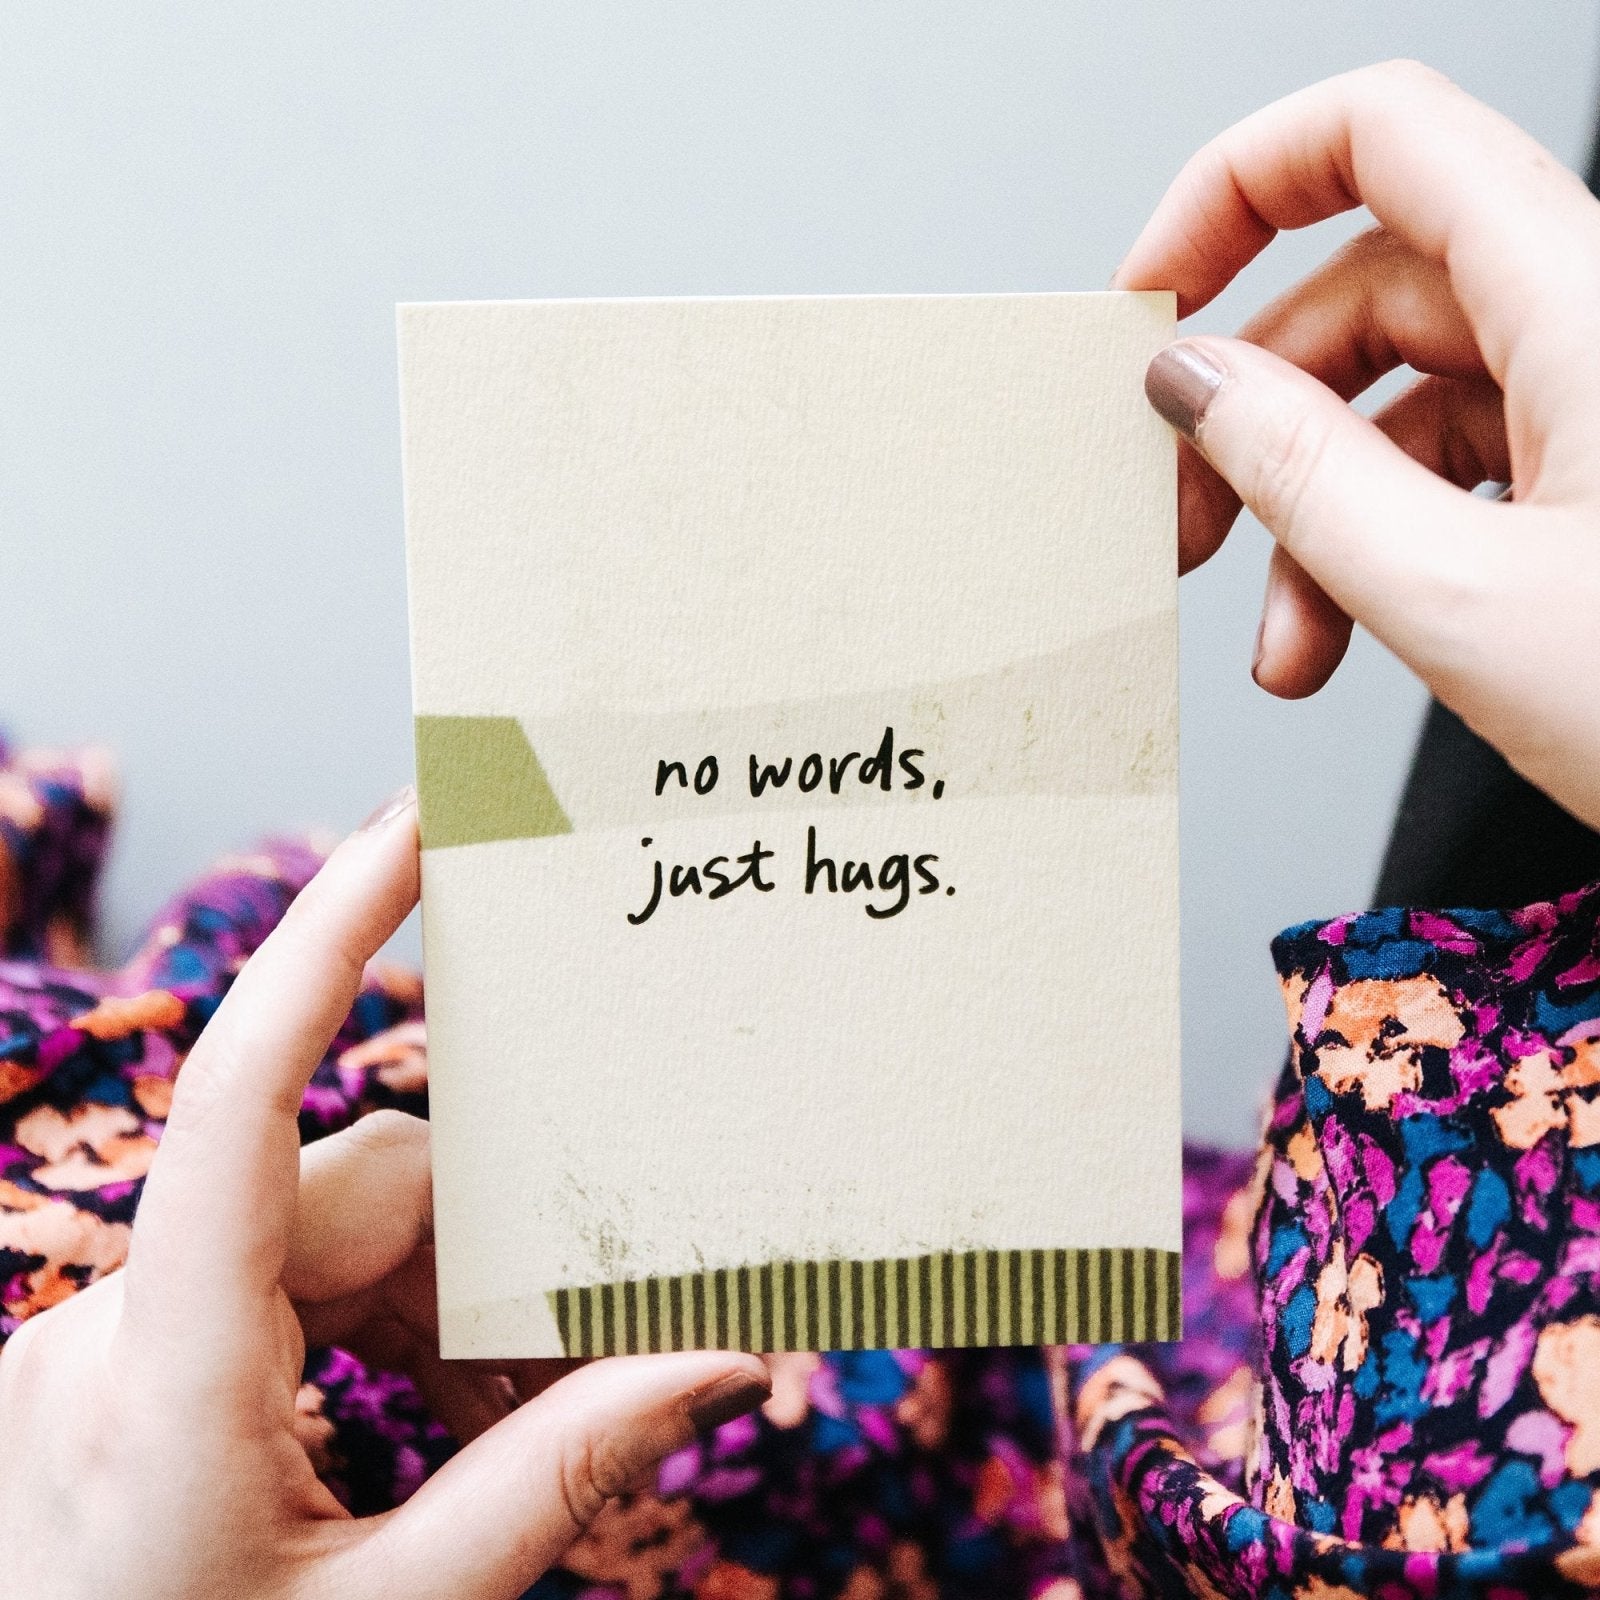 no words,
just hugs.